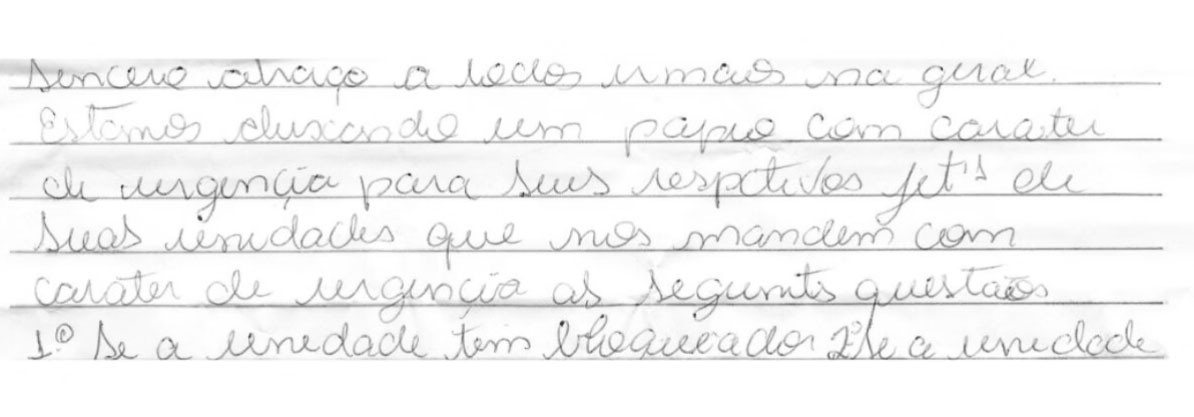 sincero abraço a todos irmãos na geral.
Estamos deixando um papio com carater
de urgencia para seus respetivos jet's de
suas unidades que nos mandem com
carater de urgencia as seguints questãos
1º se a unidade tem bloqueador 2º se a unidade